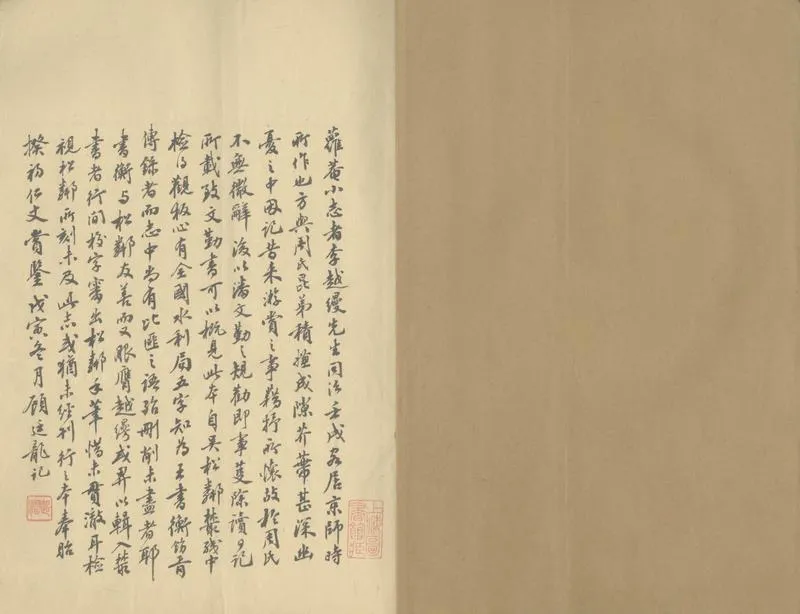 蘿菴小志者李越縵先生同治壬戌客居京師時
所作也方與周氏昆弟積嫌成隙芥蒂甚深幽
憂之中因記昔來游賞之事務抒所懷故於周氏
不無微辭後以潘文勤之規勸即事芟除讀日記
所載致文勤書可以概見此本自吳松鄰叢殘中
檢得觀板心有全國水利局五字知為王書衡飭胥
傳錄者而志中尚有比匪之語殆刪削未盡者耶
書衡與松鄰友善而又服膺越縵或畀以輯入叢
書者行間校字審出松鄰手筆惜未貫澈耳檢
視松鄰所刻未及此志或猶未經刊行之本奉貽
揆初仁丈賞鑒戊寅冬月顧廷龍記